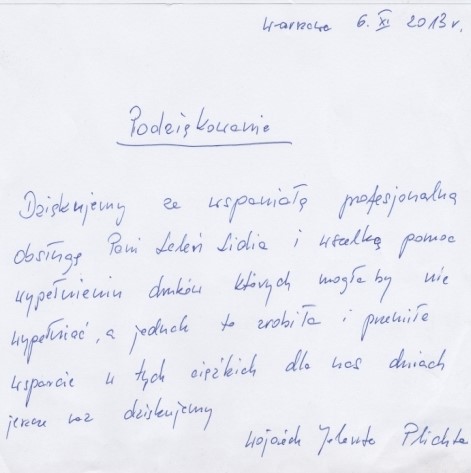 Warszawa 6. XI 2013 r.
Podziękowanie
Dziękujemy za wspaniałą profesjonalną
obsługę Pani Leleń Lidia i wszelką pomoc
wypełnieniu druków których mogłaby nie
wypełniać, a jednak to zrobiła i przemiłe
wsparcie w tych ciężkich dla nas dniach
jeszcze raz dziękujemy
Wojciech Jolanta Plichta